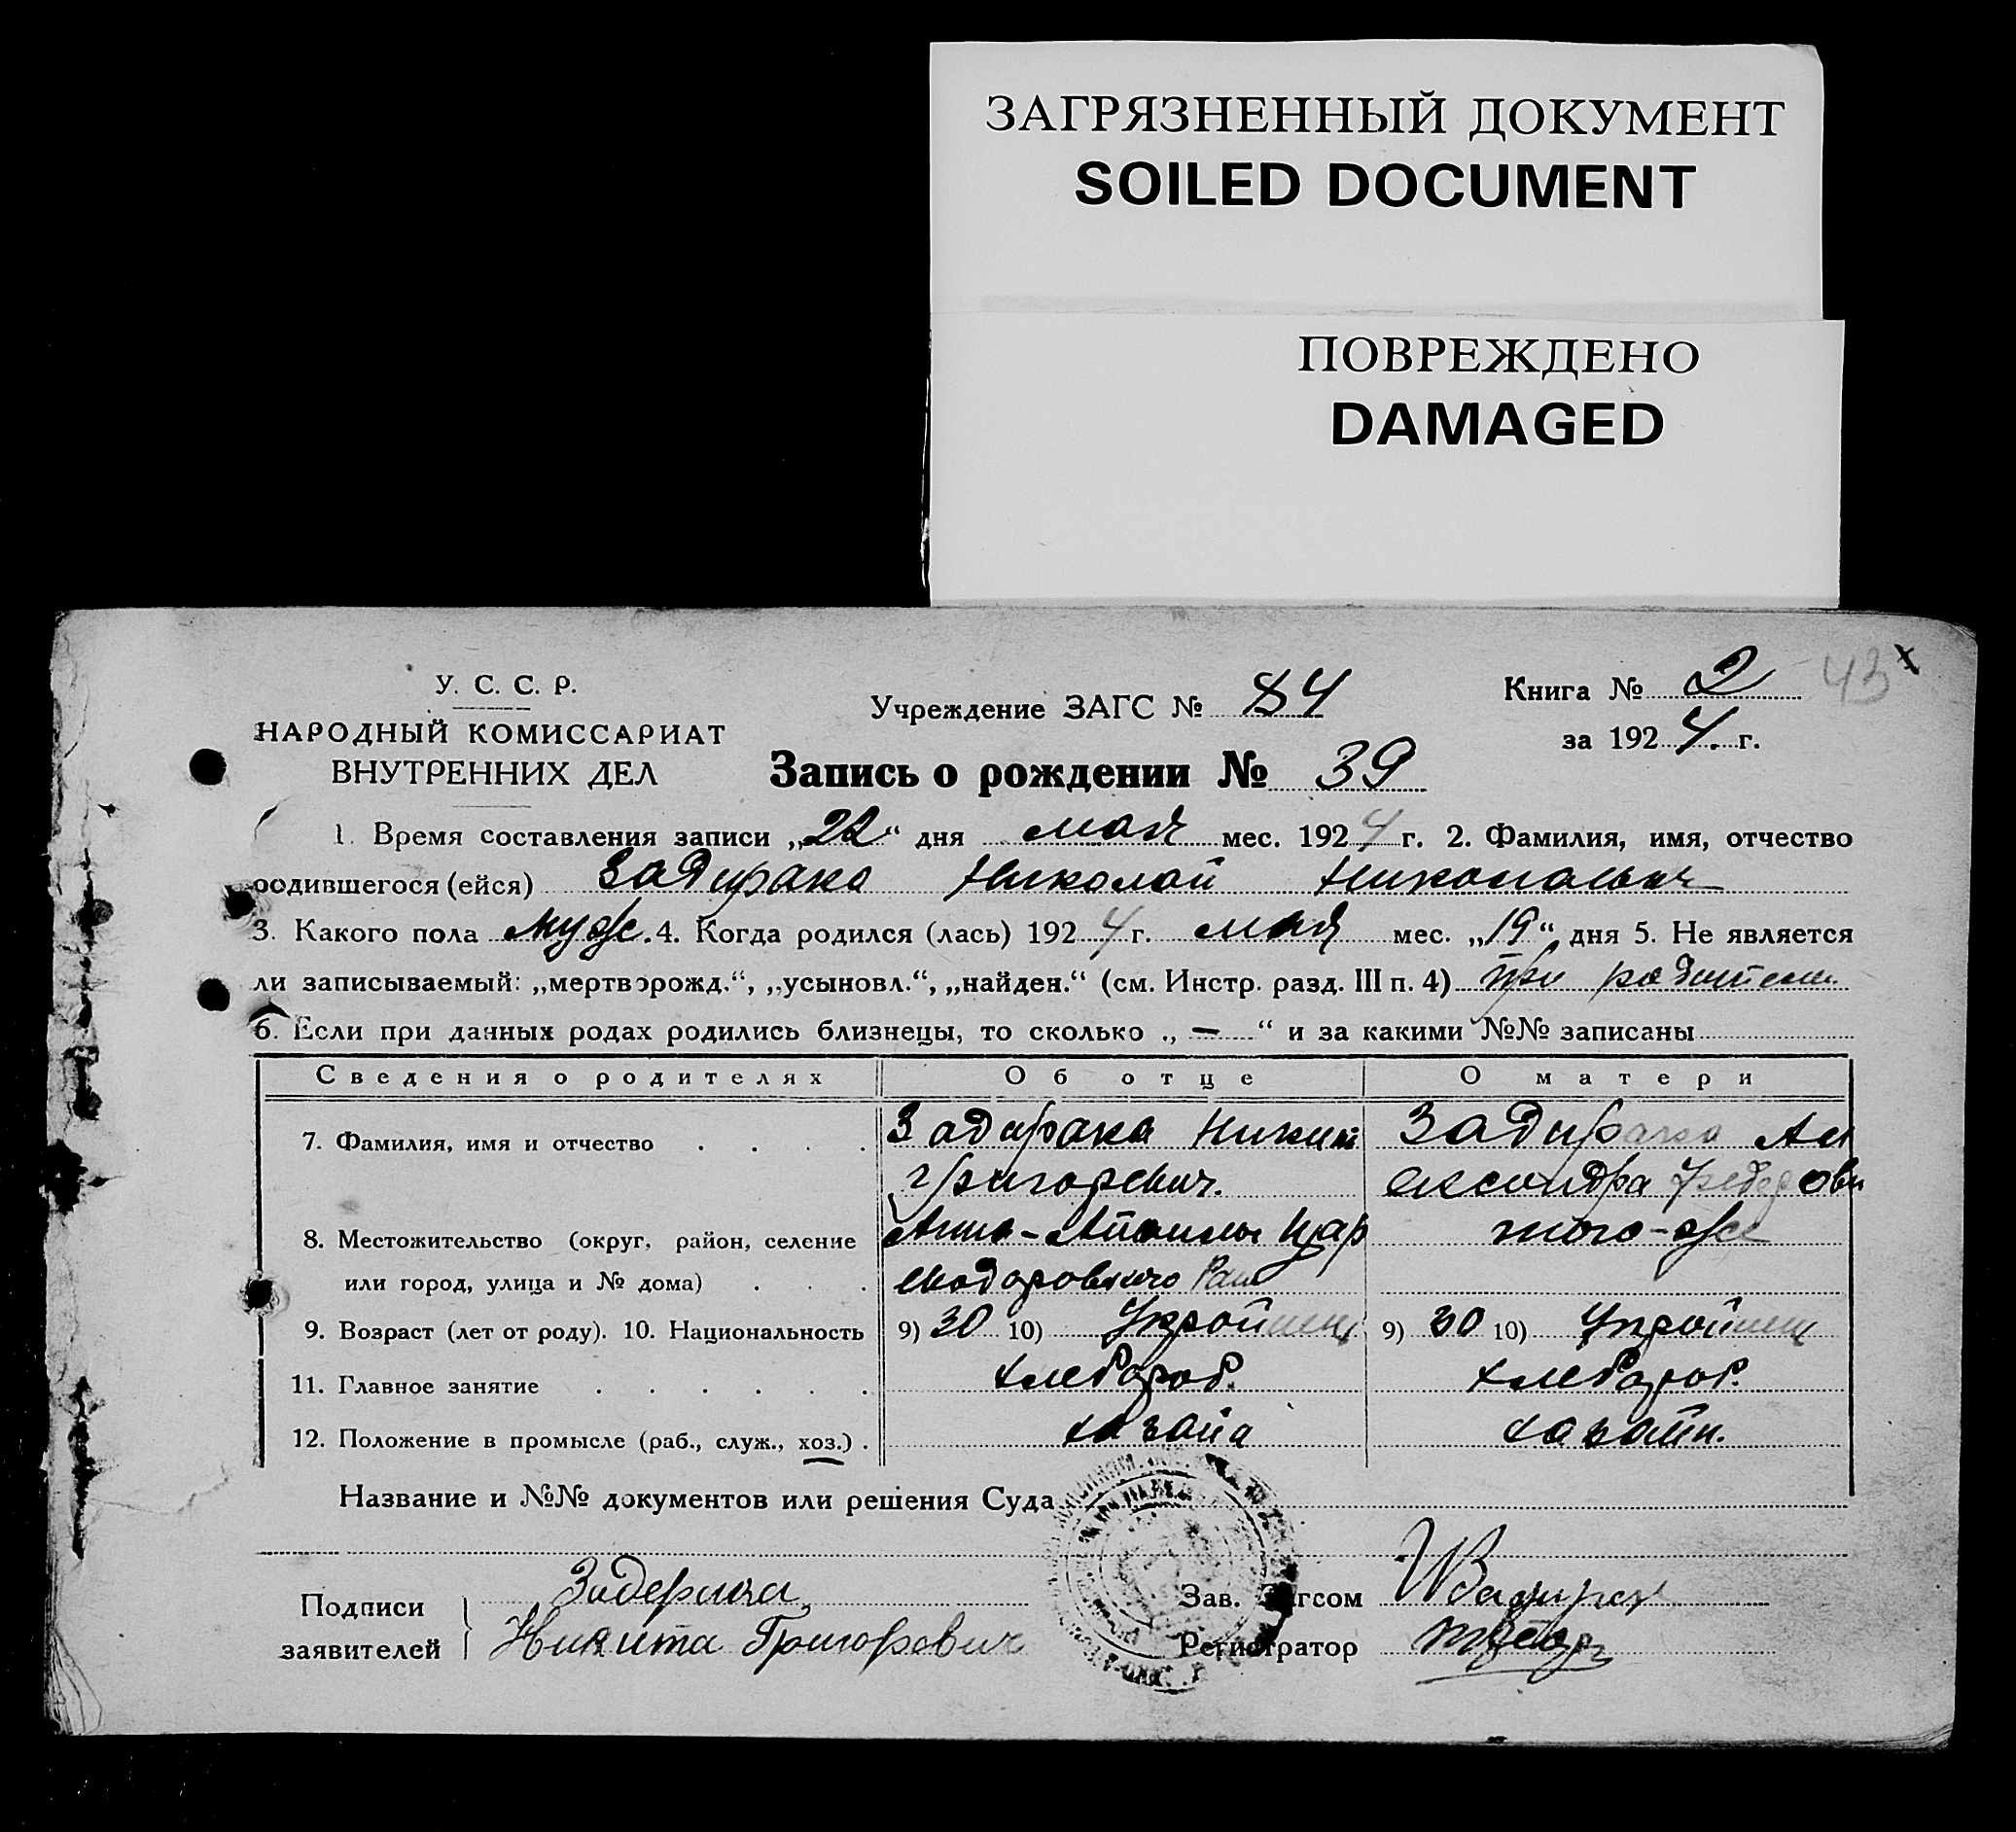 ЗАГРЯЗНЕННЫЙ ДОКУМЕНТ
SOILED DOCUMENT
ПОВРЕЖДЕНО
DAMAGED
У. С. С. Р.
НАРОДНЫЙ КОМИССАРИАТ
ВНУТРЕННИХ ДЕЛ
Учреждение ЗАГС № 84
Книга № 2 43
за 1924. г.
Запись о рождении № 39
1. Время составления записи „22“ дня мая мес. 1924 г. 2. Фамилия, имя, отчество
родившегося (ейся) Задирака Николай
3. Какого пола муж. 4. Когда родился (лась) 1924 г. мая мес. „19“ дня 5. Не является
ли записываемый: „мертворожд.“, „усыновл.“, „найден.“ (см. Инстр. разд. III п. 4) при родителях
6. Если при данных родах родились близнецы, то сколько „ — “ и за какими №№ записаны
Сведения о родителях Об отце О матери
7. Фамилия, имя и отчество . . . . Задирака Никит Задирака Ал
Григоревич. ександра Федеров
8. Местожительство (округ, район, селение Анно- Цар того-же
или город, улица и № дома) . . .
9. Возраст (лет от роду). 10. Национальность 9) 30 10) Укроинец 9) 30 10) Укроинец
11. Главное занятие . . . . . . хлебороб. хлебороб.
12. Положение в промысле (раб., служ., хоз.) . хазаин.
Название и №№ документов или решения Суда
Подписи
заявителей
Никита Григоревич
Зав. Загсом
Регистратор